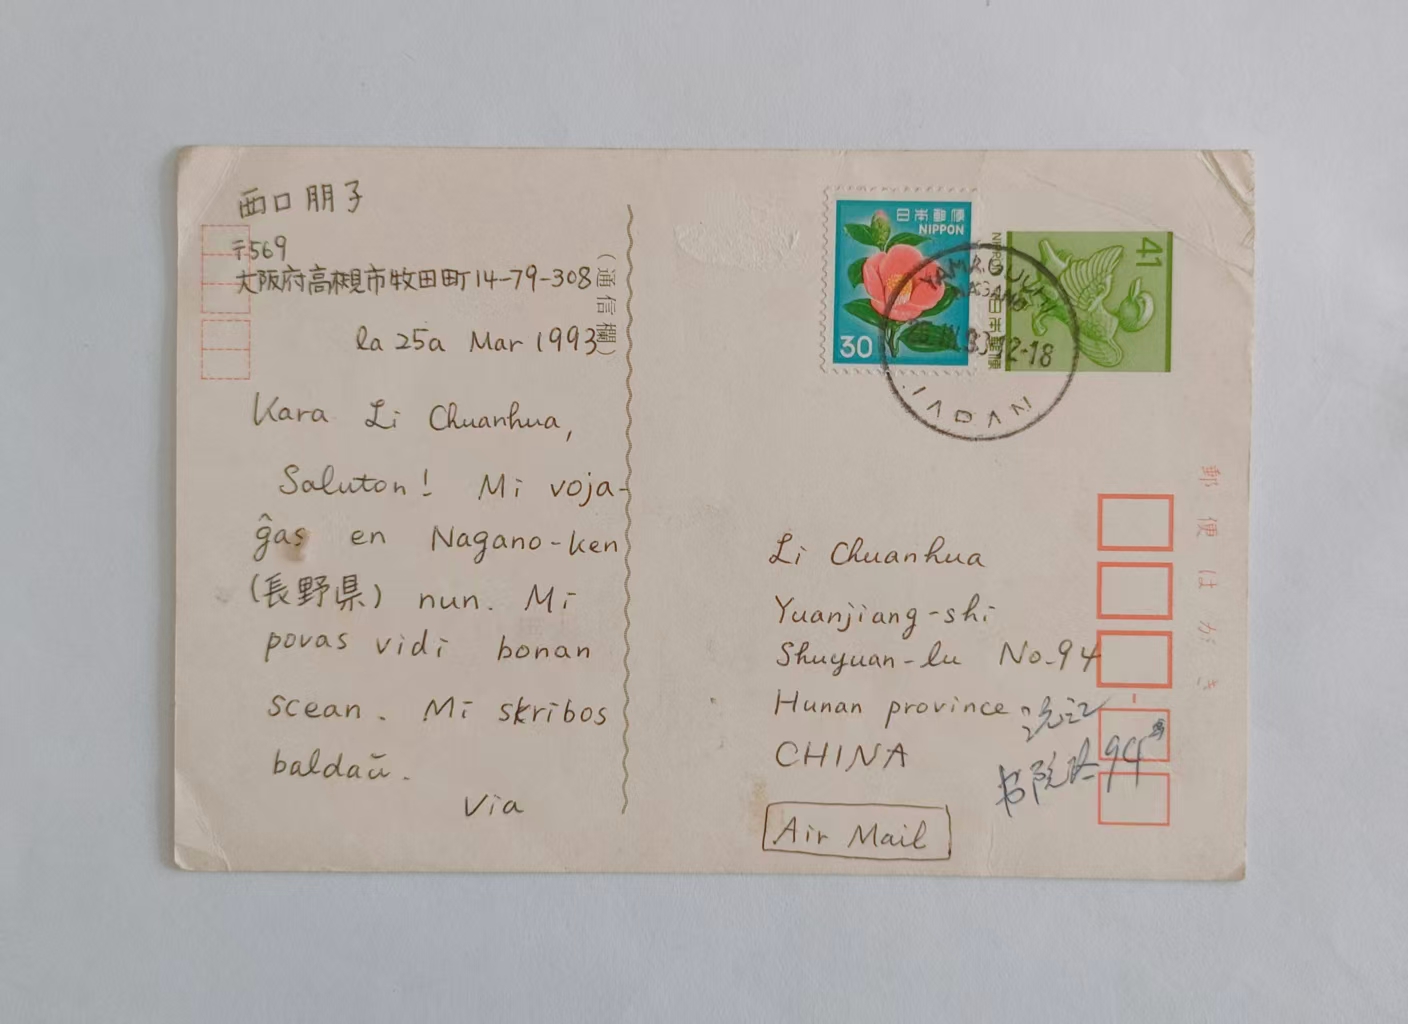 西口朋子
〒569
大阪府高槻市牧田町14-79-308
(通信欄)
la 25a Mar 1993
Kara Li Chuanhua,
Saluton! Mi voja-
ĝas en Nagano-ken
(長野県) nun. Mi
povas vidi bonan
scean. Mi skribos
baldaŭ.
Via
日本郵便
NIPPON
30
NIPPON
日本郵便
41
YAMANOUCHI
NAGANO
12-18
JAPAN
郵便はがき
Li Chuanhua
Yuanjiang-shi
Shuyuan-lu No.94
Hunan province
CHINA
沅江
书院路94号
Air Mail